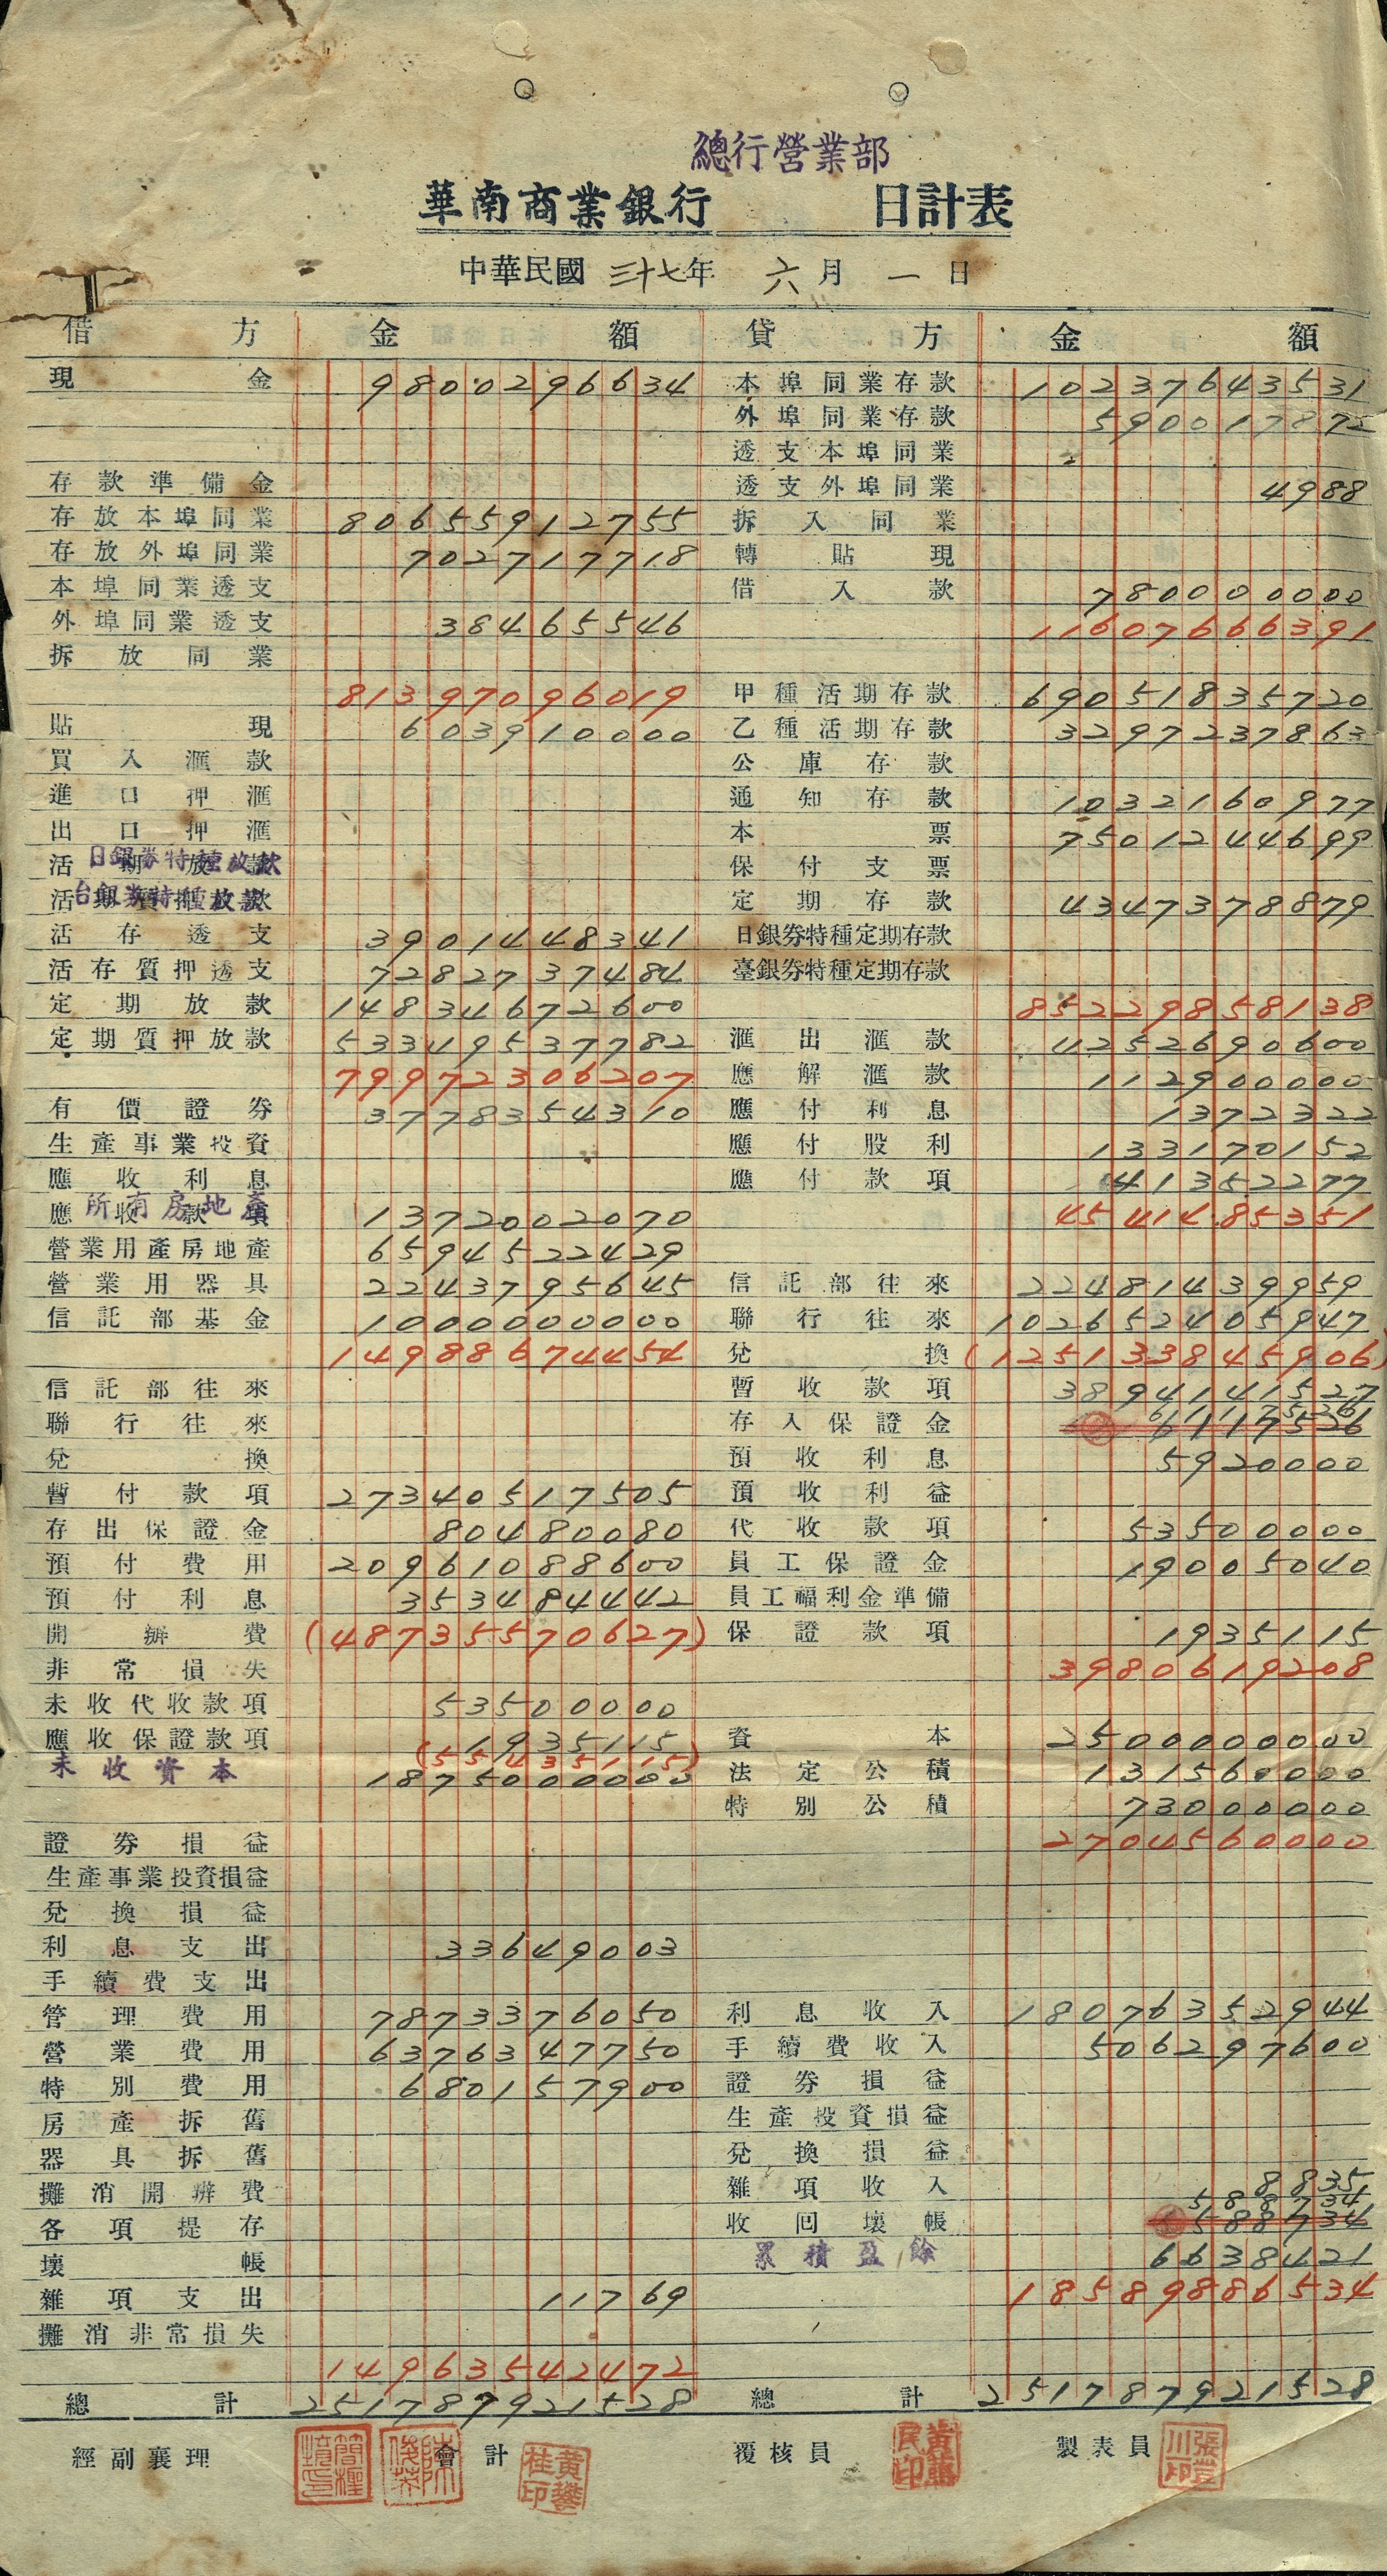 總行營業部
華南商業銀行 日計表
中華民國 三十七年 六月 一日
借方 金額 貸方 金額
現金 9800296634 本埠同業存款 10237643531
外埠同業存款 5900017872
透支本埠同業
存款準備金 透支外埠同業 4988
存放本埠同業 80655912755 拆入同業
存放外埠同業 702717718 轉貼現
本埠同業透支 借入款 7800000000
外埠同業透支 38465546 11607666391
拆放同業
81397096019 甲種活期存款 69051835720
貼現 603910000 乙種活期存款 3297237863
買入滙款 公庫存款
進口押滙 通知存款 1032160977
出口押滙 本票 7501244699
日銀券特種放款 保付支票
台銀券特種放款 定期存款 4347378879
活存透支 3901448341 日銀券特種定期存款
活存質押透支 7282737484 臺銀券特種定期存款
定期放款 14834672600 85229858138
定期質押放款 53349537782 滙出滙款 4252690600
79972306207 應解滙款 112900000
有價證券 3778354310 應付利息 1372322
生產事業投資 應付股利 133170152
應收利息 應付款項 41352277
所有房地產 1372002070 4541485351
營業用產房地產 6594522429
營業用器具 2243795645 信託部往來 22481439959
信託部基金 1000000000 聯行往來 102652405947
14988674454 兌換 (125133845906)
信託部往來 暫收款項 3894141527
聯行往來 存入保證金 6117526
兌換 預收利息 5920000
暫付款項 27340517505 預收利益
存出保證金 80480080 代收款項 53500000
預付費用 20961088600 員工保證金 19005040
預付利息 353484442 員工福利金準備
開辦費 (48735570627) 保證款項 1935115
非常損失 3980619208
未收代收款項 53500000
應收保證款項 1935115 資本 2500000000
(55435115)
未收資本 1875000000 法定公積 131560000
特別公積 73000000
證券損益 2704560000
生產事業投資損益
兌換損益
利息支出 33649003
手續費支出
管理費用 7873376050 利息收入 18076352944
營業費用 6376347750 手續費收入 506297600
特別費用 680157900 證券損益
房產拆舊 生產投資損益
器具拆舊 兌換損益
攤消開辦費 雜項收入 8835
各項提存 收回壞帳 588734
壞帳 累積盈餘 6638421
雜項支出 11769 18589886534
攤消非常損失
14963542472
總計 251787921528 總計 251787921528
經副襄理 會計 黃攀桂印 覆核員 製表員 張豐川印